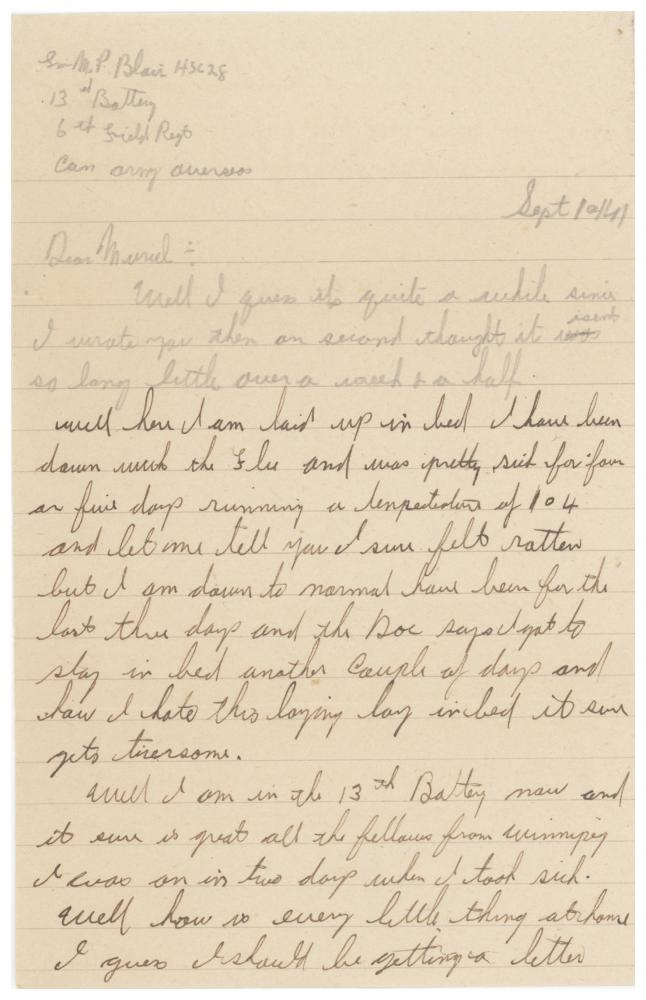 Gnr M. P. Blair H5628
13th Battery
6th Field Regt
Can army overseas
Sept 10/41
Dear Muriel :-
Well I guess its quite a while since
I wrote you then on second thought it isent
so long little over a week & a half.
well here I am laid up in bed I have been
down with the Flu and was pretty sick for four
or five days running a of 104
and let me tell you I sure felt rotten
but I am down to normal have been for the
last three days and the Doc says I got to
stay in bed another couple of days and
how I hate this laying lay in bed it sure
gets tiersome.
Well I am in the 13th Battery now and
it sure is great all the fellows from winnipeg
I was on in two days when I took sick.
Well how is every little thing at home
I guess I should be getting a letter